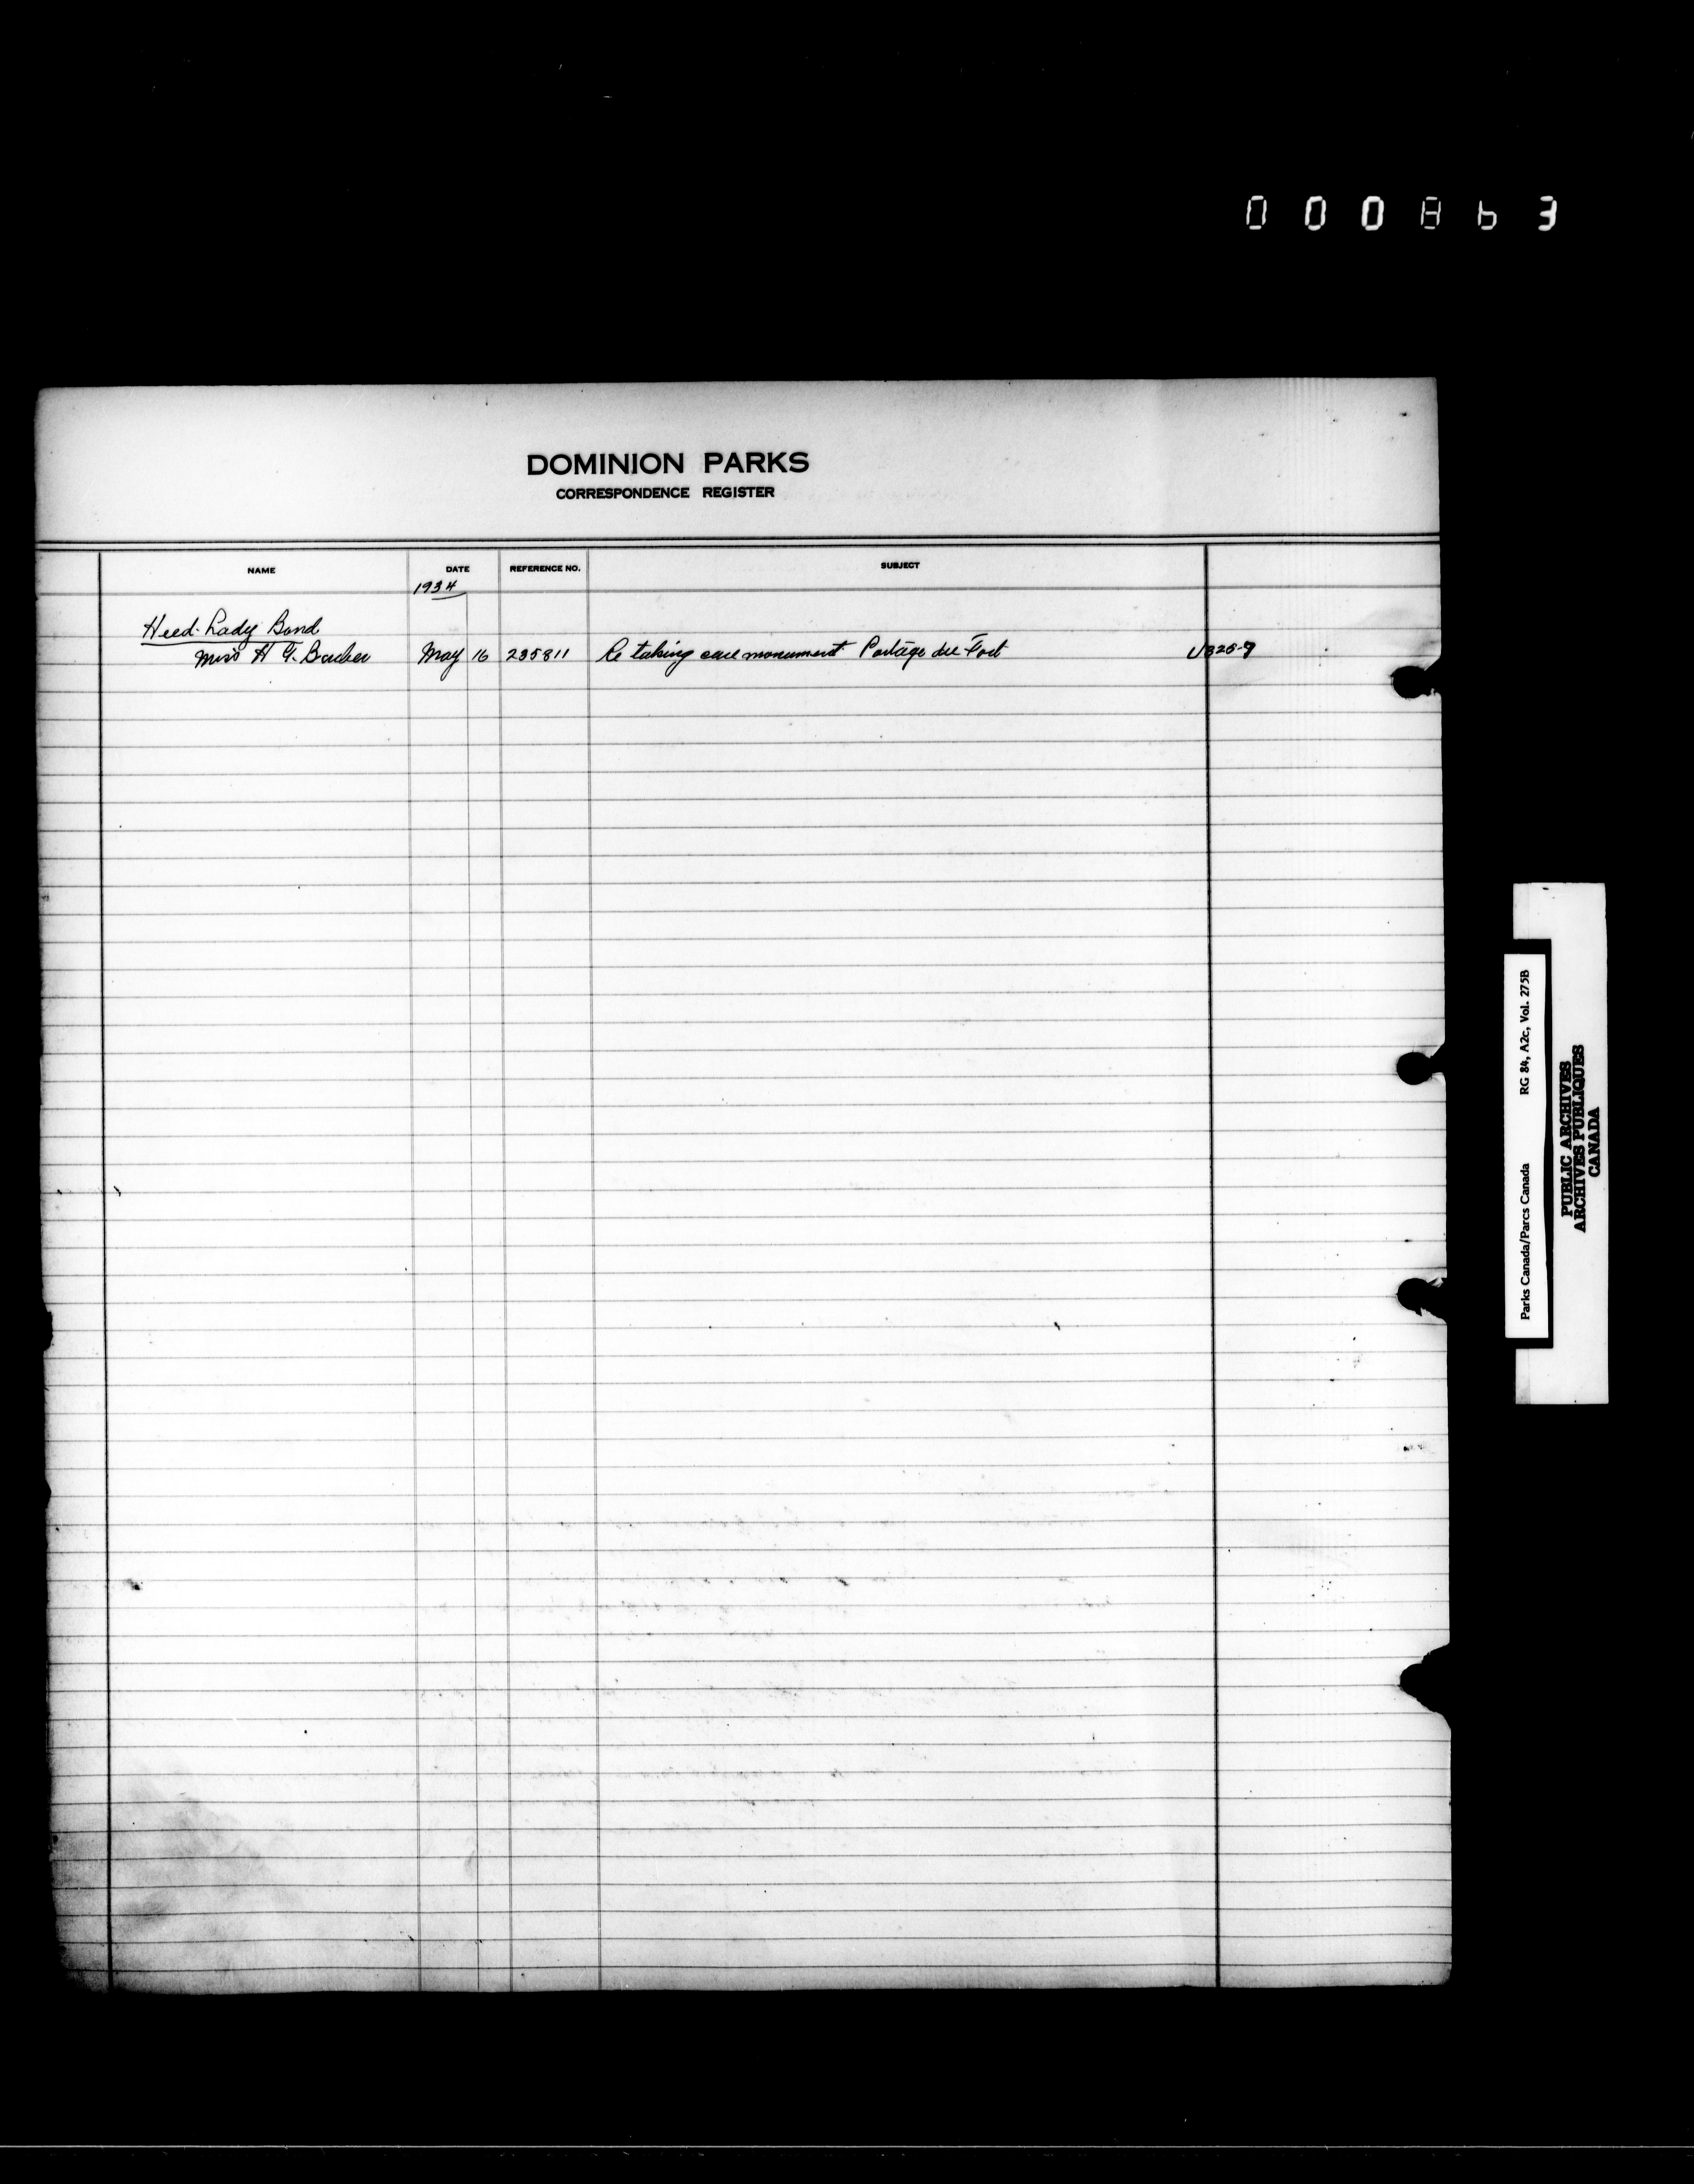 000863
DOMINION PARKS
CORRESPONDENCE REGISTER
NAME DATE REFERENCE NO. SUBJECT
1934
Head-Lady Bond
Miss H G. Barber May 16 235811 Re taking care monument Portage du Fort U325-9
Parks Canada/Parcs Canada RG 84, A2c, Vol. 275B
PUBLIC ARCHIVES
ARCHIVES PUBLIQUES
CANADA